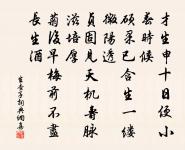 才生申十日便小
春時候
碩果已含生一縷
微陽透
貞固見天機壽脈
滋培厚
菊後早梅前不盡
長生酒
生查子